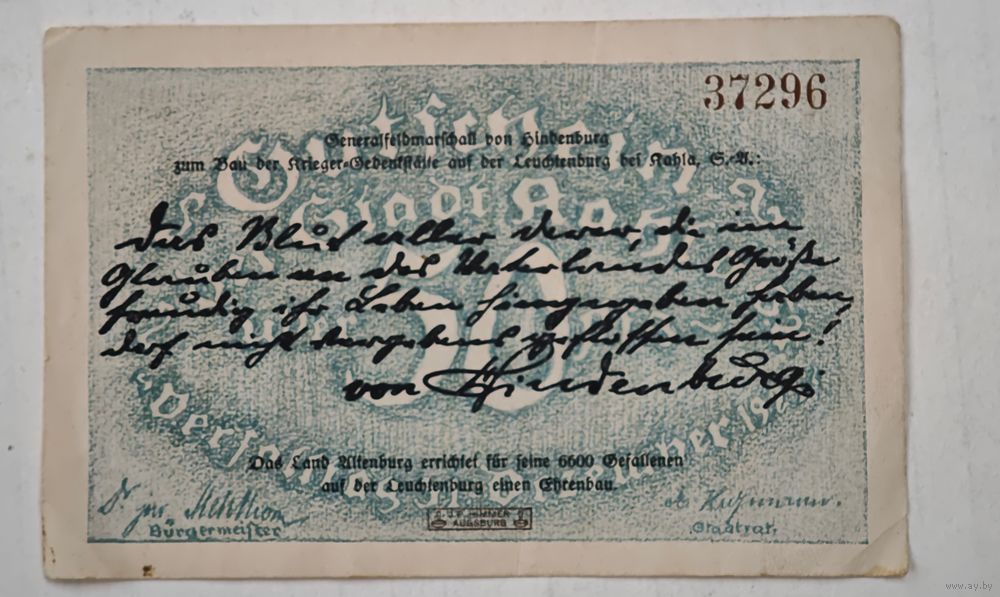 37296
Generalfeldmarschall von Hindenburg
zum Bau der Krieger=Gedenkstätte auf der Leuchtenburg bei Kahla, S.=A.:
Gutschein
Stadt Kahla
50
Das Blut aller derer, die im
Glauben an des Vaterlandes Größe
freudig ihr Leben hingegeben haben,
darf nicht vergebens geflossen sein!
von Hindenburg.
Das Land Altenburg errichtet für seine 6600 Gefallenen
auf der Leuchtenburg einen Ehrenbau.
Dr jur.
Bürgermeister
Stadtrat.
HIMMER
AUGSBURG
www.ay.by